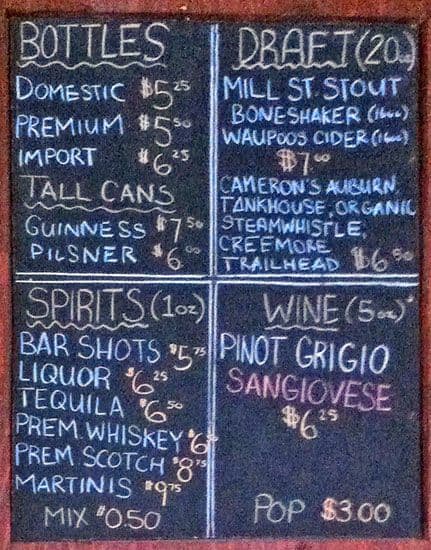 BOTTLES
DOMESTIC $5.25
PREMIUM $5.50
IMPORT $6.25
TALL CANS
GUINNESS $7.50
PILSNER $6.00
DRAFT (20oz)
MILL ST. STOUT
BONESHAKER (16oz)
WAUPOOS CIDER (16oz)
$7.00
CAMERON'S AUBURN,
TANKHOUSE, ORGANIC
STEAMWHISTLE,
CREEMORE
TRAILHEAD $6.50
SPIRITS (1oz)
BAR SHOTS $5.75
LIQUOR $6.25
TEQUILA $6.50
PREM. WHISKEY $6
PREM SCOTCH $8.75
MARTINIS $9.75
MIX $0.50
WINE (5oz)
PINOT GRIGIO
SANGIOVESE
$6.25
POP $3.00